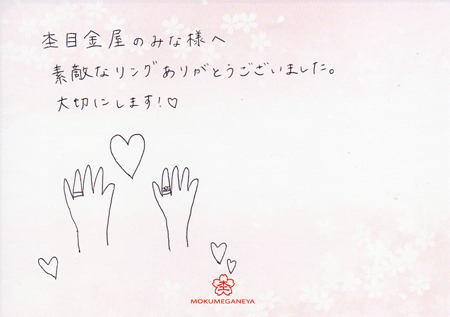 杢目金屋のみな様へ
素敵なリングありがとうございました。
大切にします！♡
MOKUMEGANEYA